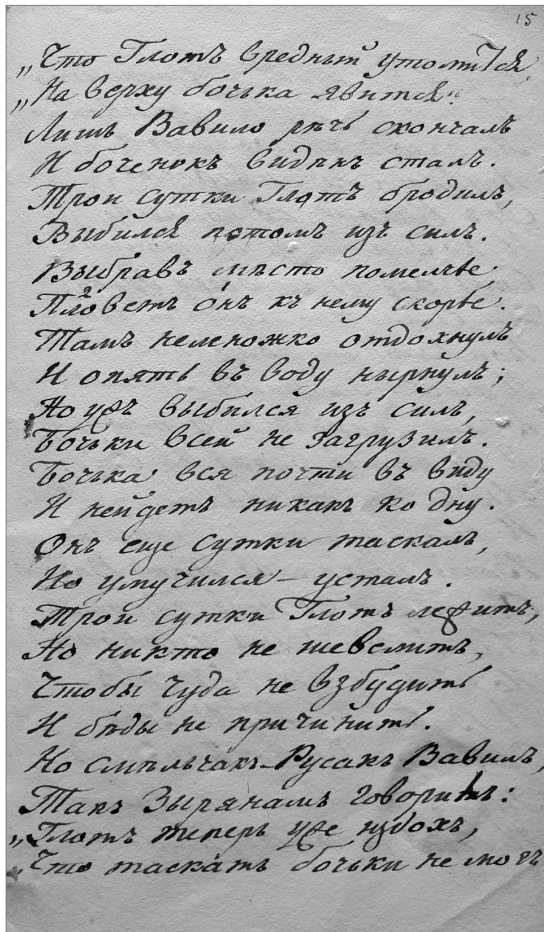 15
„Что Глотъ вредный утомится,
„На верху бочька явится“.
Лишь Вавило рѣчь скончалъ
И боченокъ видѣнъ сталъ.
Трои сутки Глотъ бродилъ,
Выбился потомъ изъ силъ.
Выбравъ мѣсто помельче,
Пловетъ онъ къ нему скорѣе.
Тамъ немножко отдохнулъ
И опять въ воду нырнулъ;
Но ужъ выбился изъ силъ,
Бочьки всей не загрузилъ.
Бочька вся почти въ виду
И нейдетъ никакъ ко дну.
Онъ еще сутки таскалъ,
Но умучился – усталъ.
Трои сутки Глотъ лежитъ,
Но никто не шевелитъ,
Чтобы чуда не взбудить
И бѣды не причинить.
Но смѣльчакъ-Русакъ Вавилъ,
Такъ Зырянамъ говоритъ:
„Глотъ теперь уже издохъ,
„Что таскать бочьки не могъ